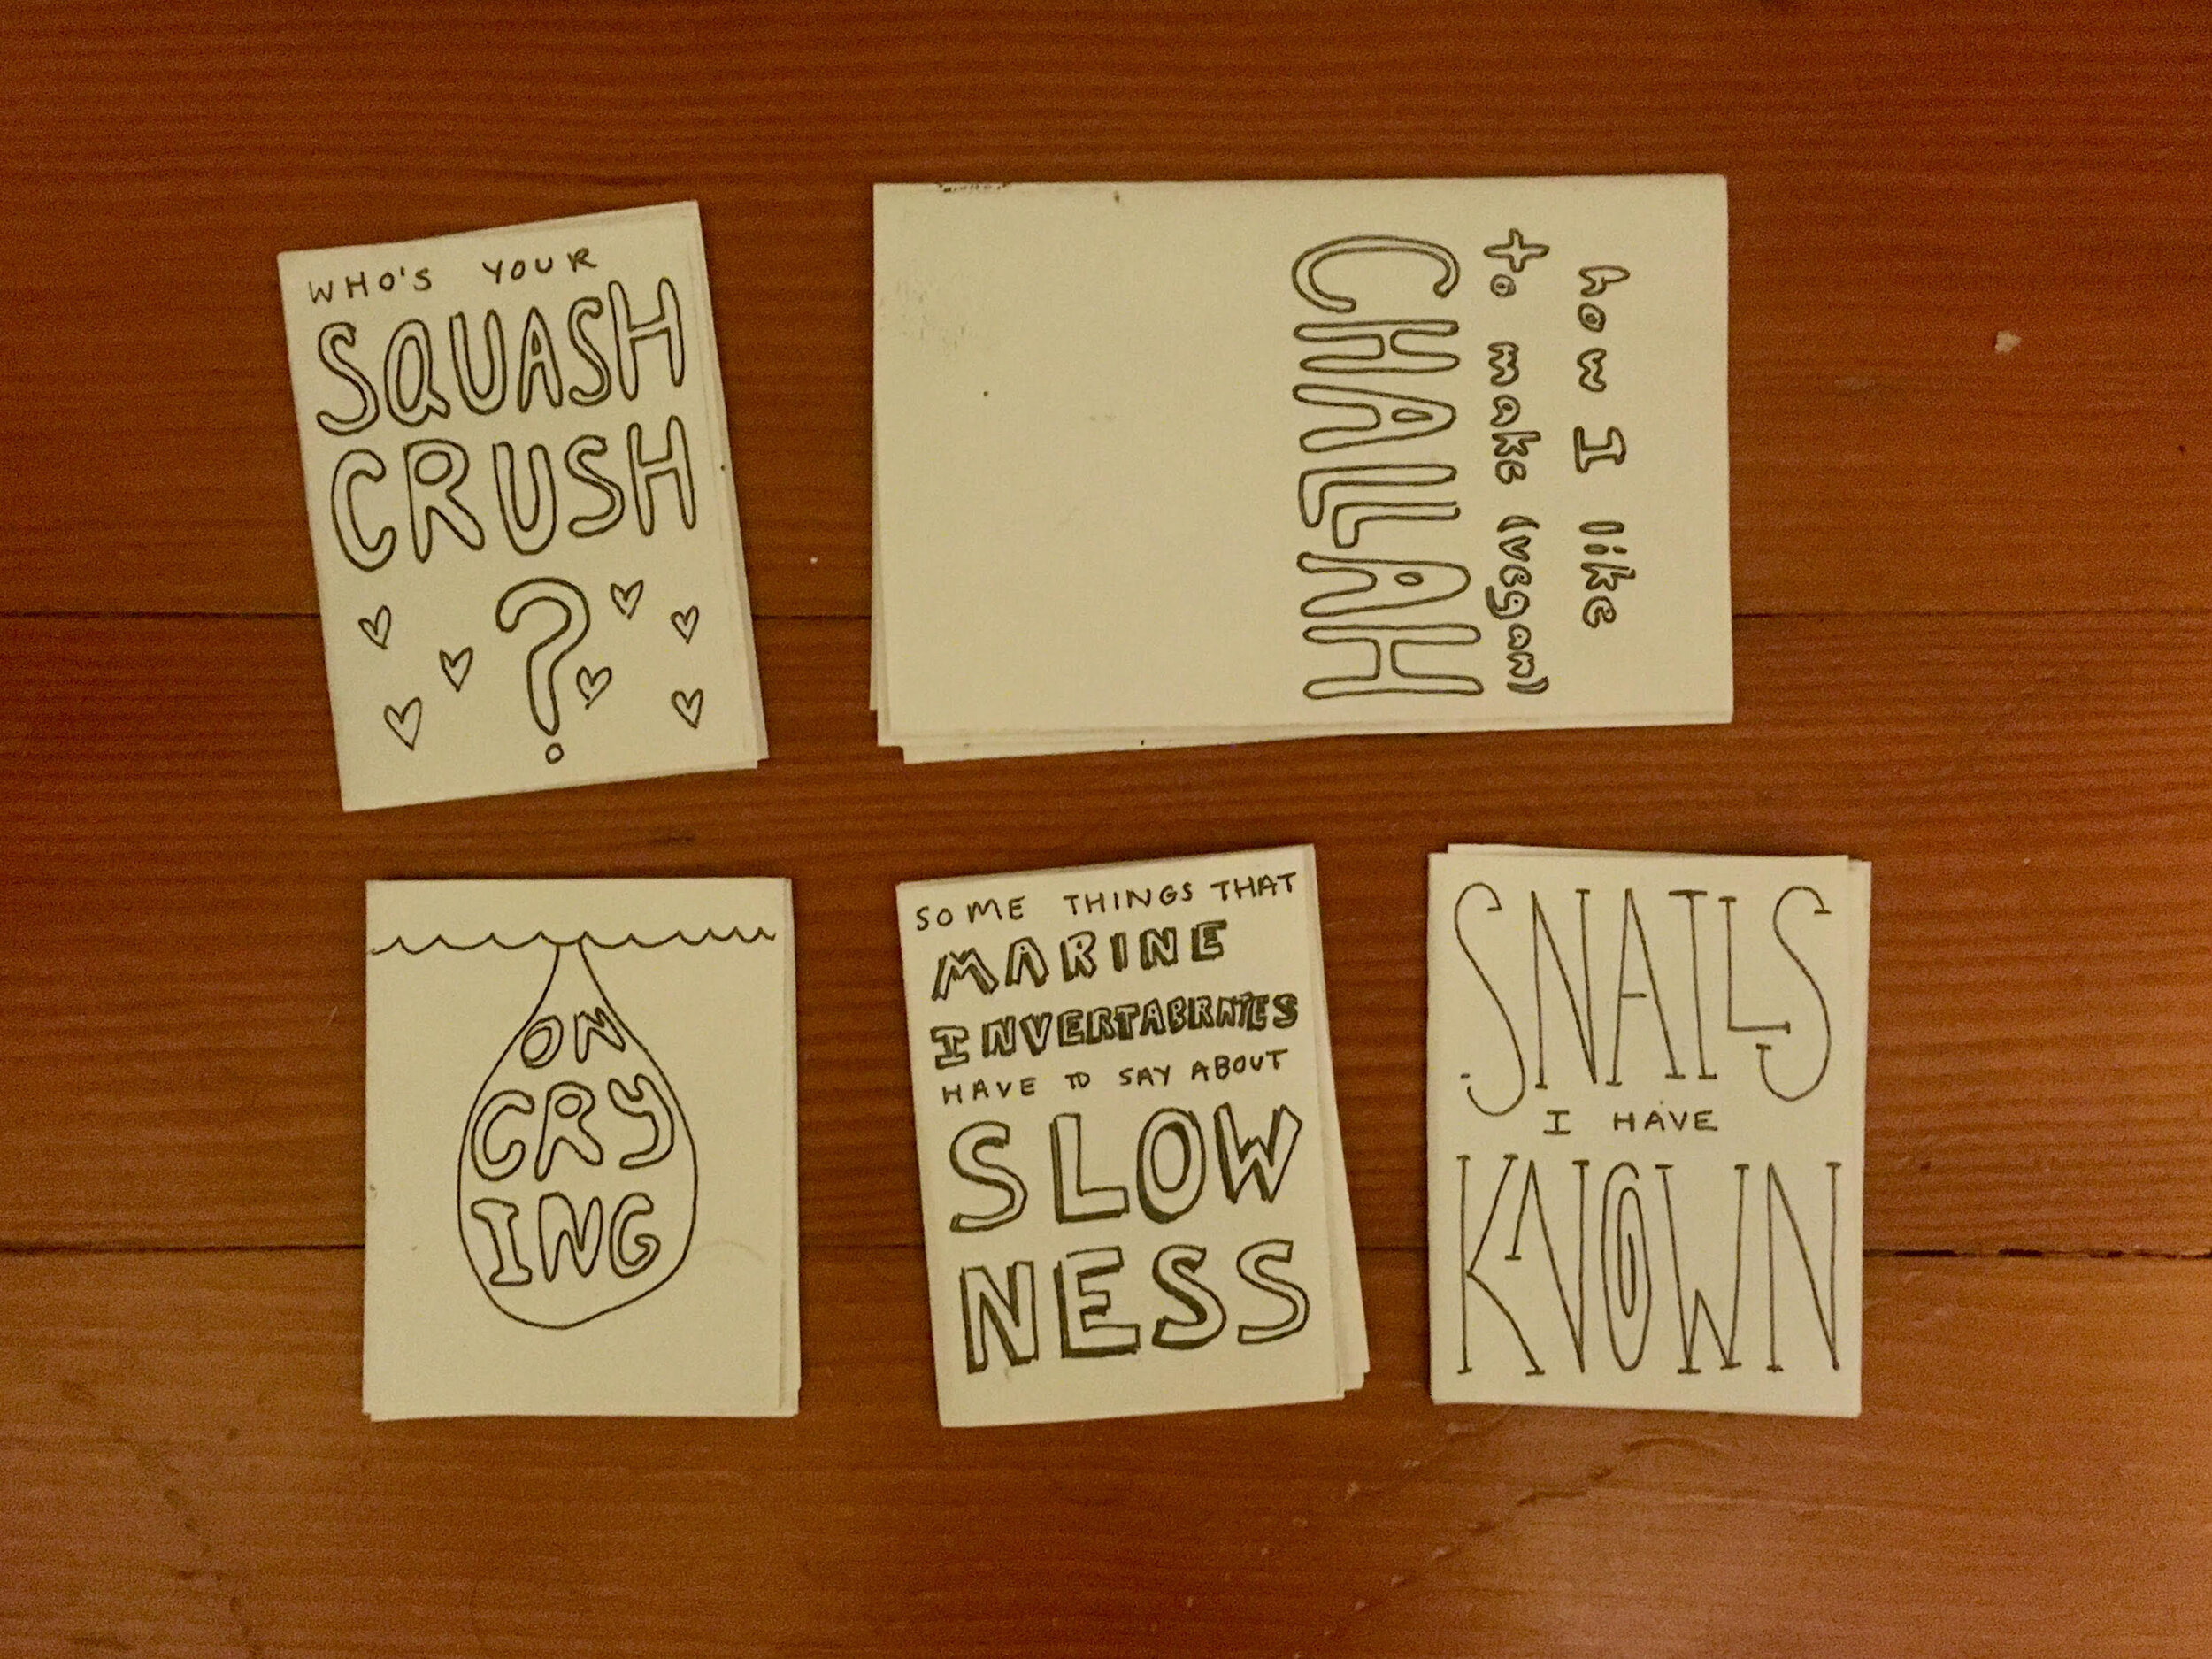 WHO'S YOUR
SQUASH
CRUSH
?
how I like
to make (vegan)
CHALLAH
ON
CRY
ING
SOME THINGS THAT
MARINE
INVERTABRATES
HAVE TO SAY ABOUT
SLOW
NESS
SNAILS
I HAVE
KNOWN